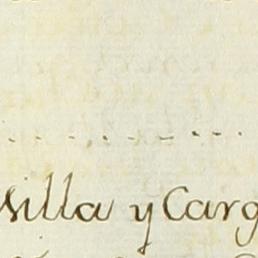 silla y Carg